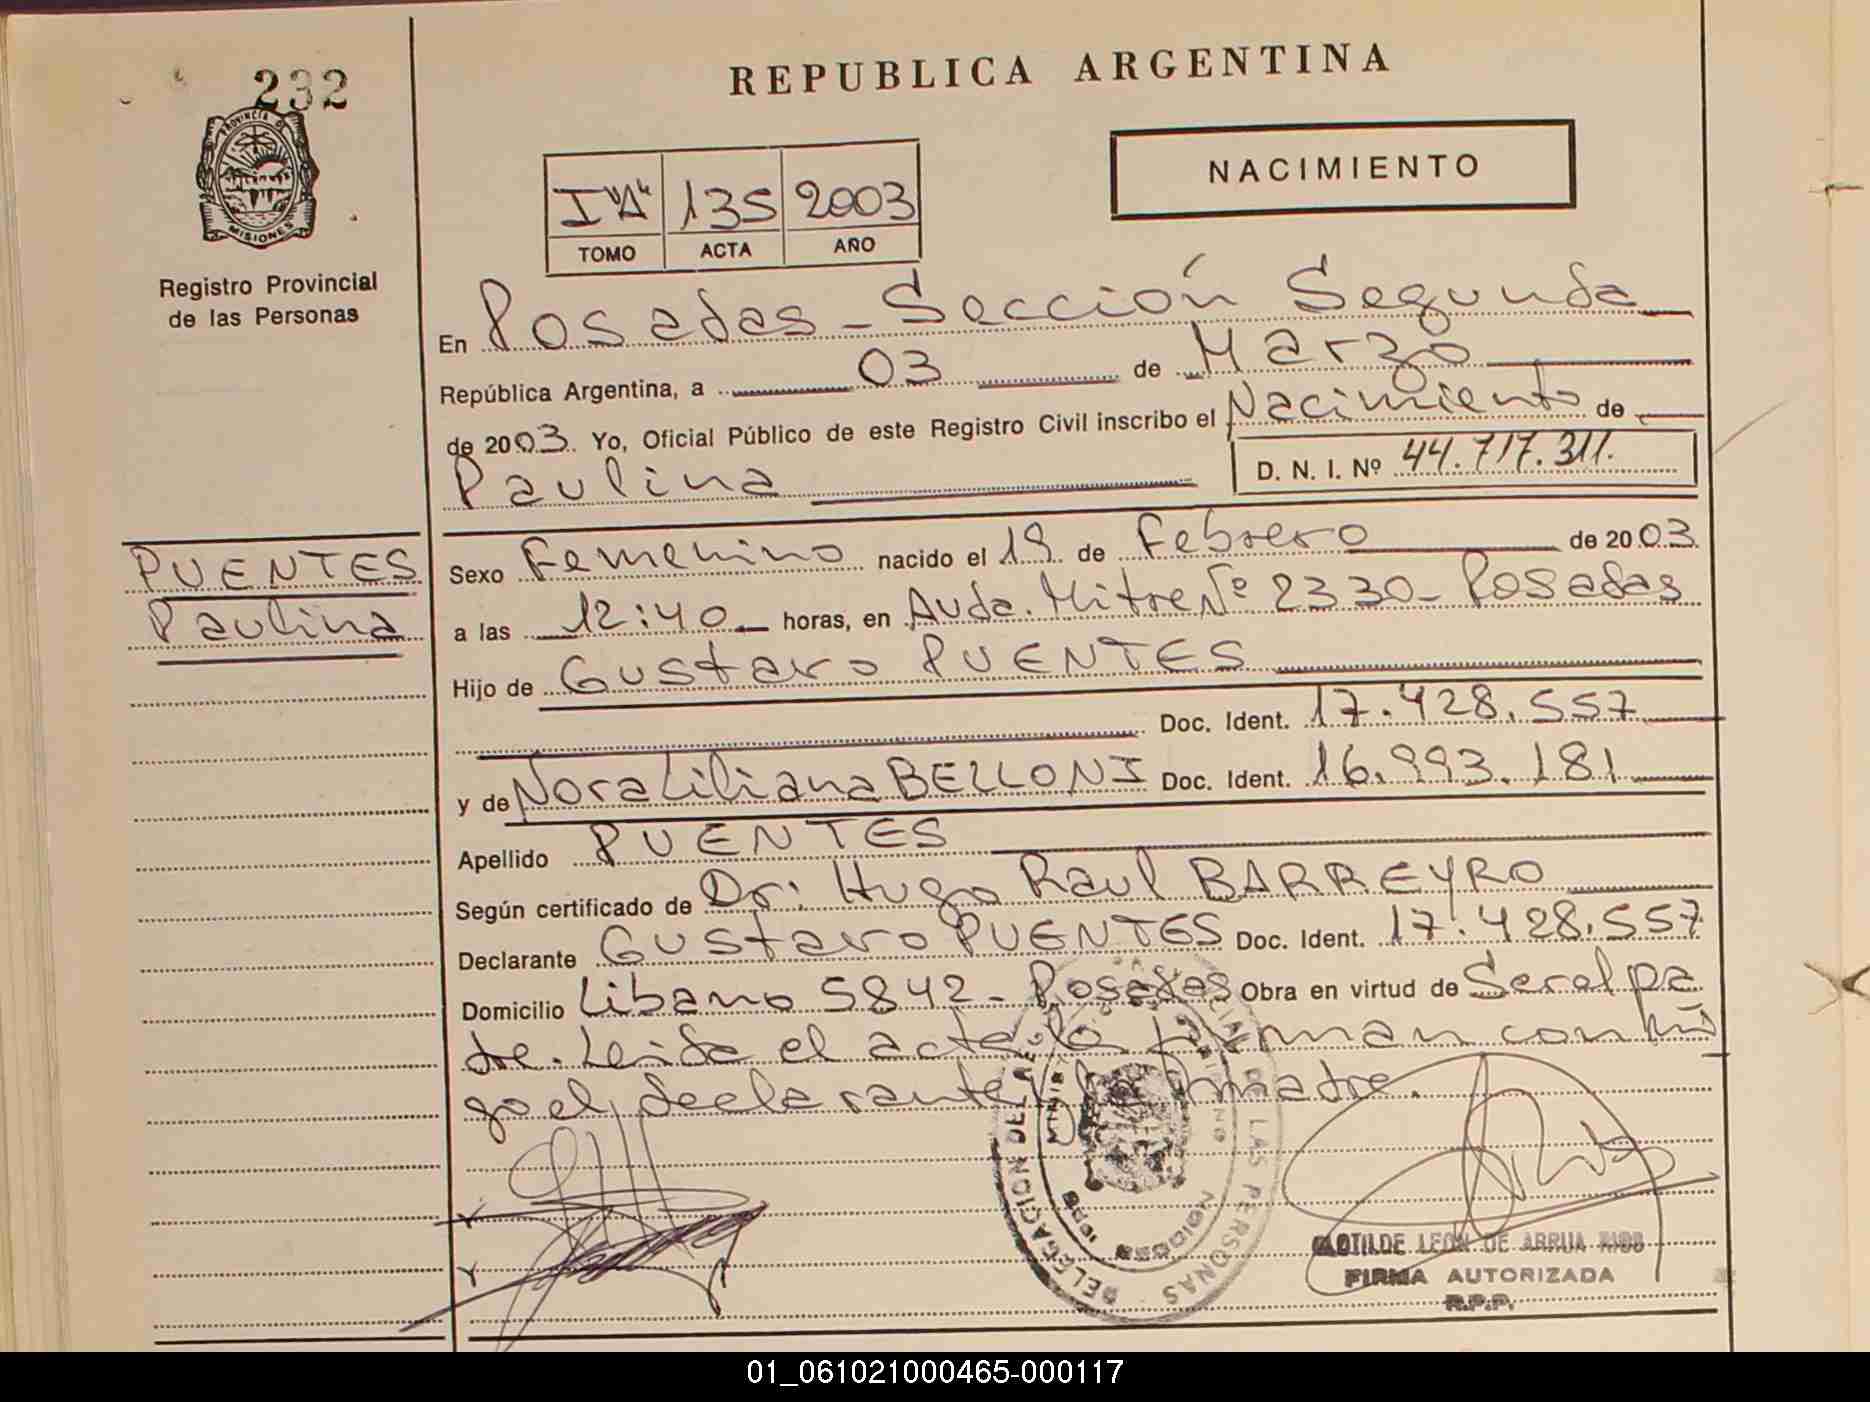 232
PROVINCIA DE
MISIONES
Registro Provincial
de las Personas
REPUBLICA ARGENTINA
NACIMIENTO
I "A" 135 2003
TOMO ACTA AÑO
En Posadas - Sección Segunda
República Argentina, a 03 de Marzo
de 2003. Yo, Oficial Público de este Registro Civil inscribo el Nacimiento de
Paulina
D. N. I. Nº 44.717.311.
PUENTES
Paulina
Sexo Femenino nacido el 19 de Febrero de 2003
a las 12:40 horas, en Avda. Mitre Nº 2330 - Posadas
Hijo de Gustavo PUENTES
Doc. Ident. 17.428.557
y de Nora Liliana BELLONI Doc. Ident. 16.993.181
Apellido PUENTES
Según certificado de Dr: Hugo Raul BARREYRO
Declarante Gustavo PUENTES Doc. Ident. 17.428.557
Domicilio Libano 5842 - Posadas Obra en virtud de Ser el pa
dre. Leida el acta la firman conmi
go el declarante y la madre.
DELEGACION DEL REG PROVINCIAL DE LAS PERSONAS
MISIONES
CLOTILDE LEON DE ARRUA
FIRMA AUTORIZADA
R.P.P.
01_061021000465-000117